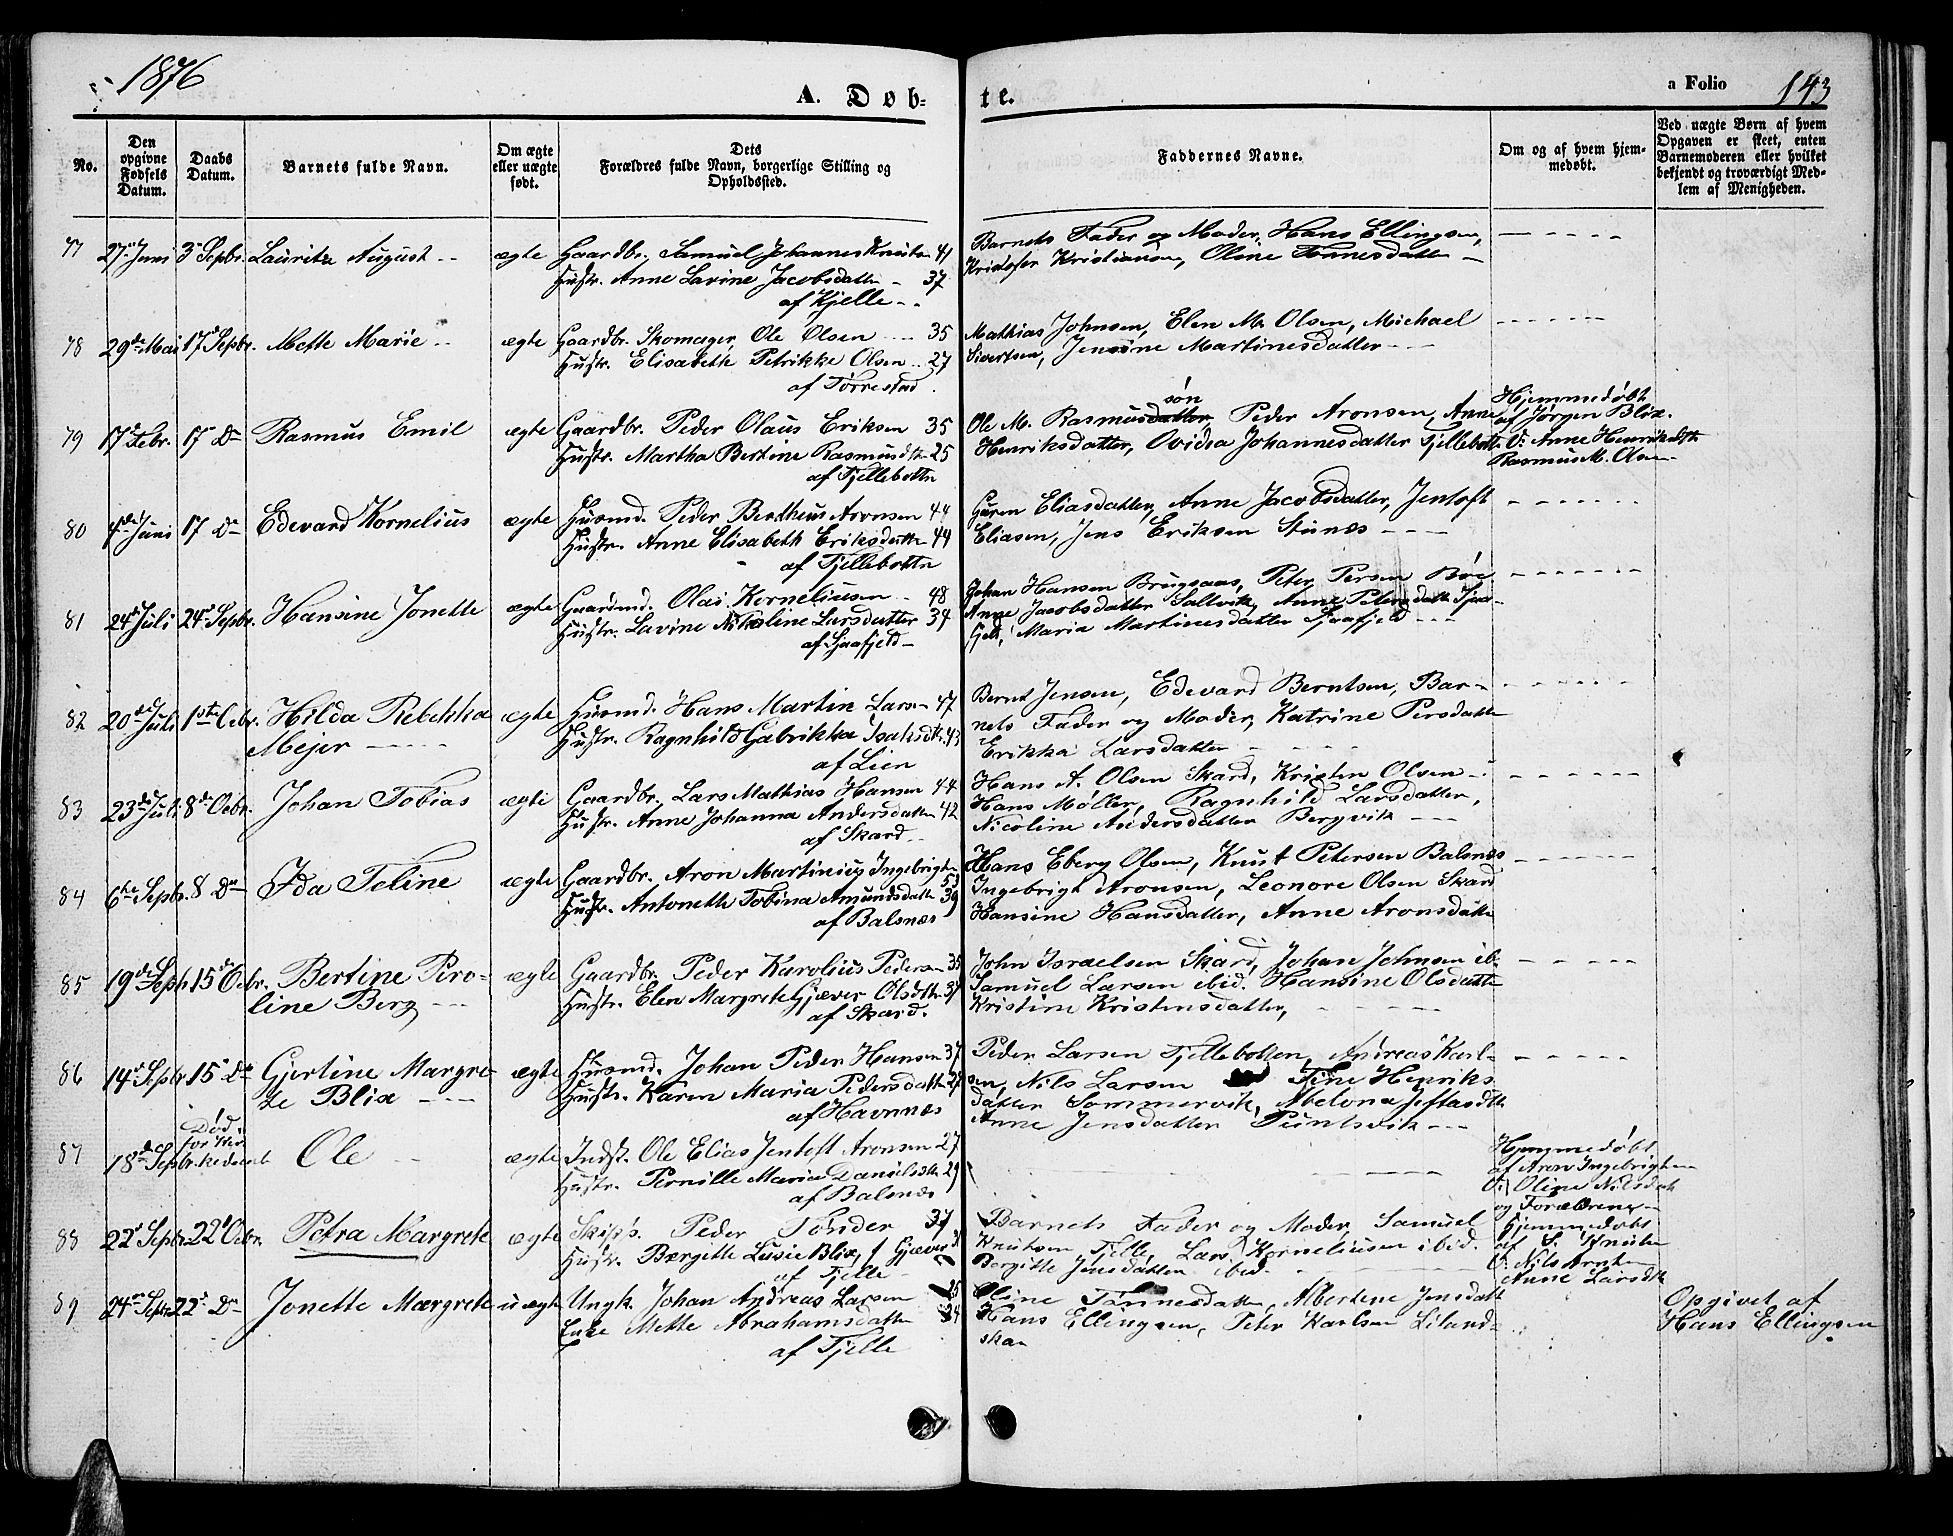 1876
A. Døb-
te.
a Folio 143
No.
Den opgivne Fødsels Datum.
Daabs Datum.
Barnets fulde Navn.
Om ægte eller uægte født.
Dets Forældres fulde Navn, borgerlige Stilling og Opholdssted.
Faddernes Navne.
Om og af hvem hjem-
medøbt.
Ved uægte Børn af hvem
Opgaven er skeet, enten
Barnemoderen eller hvilket
bekjendt og troværdigt Med-
lem af Menigheden.
77 27 Juni 3 Sepbr. Lauritz August ægte Gaardbr. Samuel Johannes Knutsen 41
Hustr. Anne Lavine Jacobsdatter 37
af Kjelle
Barnets Fader og Moder, Hans Ellingsen,
Kristofer Kristiansen, Oline Tønnesdatter
78 29de Mai 17d Sepbr. Mette Marie ægte Gaardbr. Skomager Ole Olsen 35
Hustr. Elisabeth Petrikke Olsen 27
af Tørrestad
Mathias Johnsen, Elen M. Olsen, Michael
Sivertsen, Jensine Martinesdatter
79 17d Febr. 17 Do Rasmus Emil ægte Gaardbr. Peder Olaus Eriksen 35
Hustr. Martha Bertine Rasmusdtr 25
af Fjellebotten
søn
Ole M. Rasmusdatter, Peder Aronsen, Anne
Henriksdatter, Ovidia Johannesdatter Fjellebott
Hjemmedøbt
af Jørgen Blix.
V: Anne Henriksdtr
Rasmus M. Olsen
80 4de Juni 17 Do Edevard Kornelius ægte Husmd. Peder Bertheus Aronsen 44
Hustr. Anne Elisabeth Eriksdattr 44
af Fjellebotten
Guren Eliasdatter, Anne Jacobsdatter, Jentoft
Eliasen, Jens Eriksen Stunes
81 24d Juli 24d Sepbr. Hansine Jonette ægte Gaardmd. Olai Korneliusen 48
Hustr. Lavine Nikoline Larsdatter 34
af Sjaafjeld
Johan Hansen Brugsaas, Peter Persen Bøe
Anne Jacobsdatter Saltvik, Anne Petersdatter Sjaa-
fjeld, Maria Martinesdatter Sjaafjeld
82 20de Juli 1ste Ocbr. Hilda Rebekka ægte Husmd. Hans Martin Larsen 47
Mejer
Hustr. Ragnhild Gabrikka Isaksdtr 43
af Lien
Bernt Jensen, Edevard Berntsen, Bar-
nets Fader og Moder, Katrine Persdatter
Erikka Larsdatter
83 23de Juli 8de Ocbr. Johan Tobias ægte Gaardbr. Lars Mathias Hansen 44
Hustr. Anne Johanna Andersdatter 42
af Skard
Hans A. Olsen Skard, Kristen Olsen
Hans Møller, Ragnhild Larsdatter,
Nicoline Andersdatter Bergvik
84 6te Sepbr. 8 Do Ida Teline ægte Gaardbr. Aron Martinius Ingebrigtsen
53
Hustr. Antonette Tobina Amundsdatter 39
af Balsnes
Hans Eberg Olsen, Knut Petersen Balsnes
Ingebrigt Aronsen, Leonore Olsen Skard
Hansine Hansdatter, Anne Aronsdatter
85 19de Sepbr. 15de Ocbr. Bertine Piro- ægte Gaardbr. Peder Karolius Pedersen 35
line Berg
Hustr. Elen Margrete Gjæver Olsdtr 37
af Skard.
John Israelsen Skard, Johan Johnsen ib.
Samuel Larsen ibid. Hansine Olsdatter
Kristine Kristensdatter,
86 14d Sepbr. 15d Do Gjertine Margre- ægte Husmd. Johan Peder Hansen 37
te Blix
Hustr. Karen Maria Pedersdatter 27
af Havnnæs
Peder Larsen Fjellebotten, Andreas Karl-
sen, Nils Larsen Tine Henriks
datter Sommervik, Abelona Jeftasdtr
Anne Jensdatter Puntsvik
87 18de Sepbr. Død
før Kir
kedaab Ole ægte Indst. Ole Elias Jentoft Aronsen 27
Hustr. Pernille Maria Danielsdtr 29
af Balsnes
Hjemmedøbt
af Aron Ingebrigtsen
V: Oline Nilsdatr
og Forældrene
88 22d Sepbr. 22d Ocbr. Petra Margrete ægte Skips. Peder Tønder 37
Hustr. Børgitte Lusie Blix, f. Gjæver
af Fjelle
Barnets Fader og Moder, Samuel
Knutsen Fjelle, Lars Korneliusen ibid.
Bergitte Jensdatter ibid.
Hjemmedøbt
af S. Knutsen
V: Nils Arnt
Anne Larsdtr
89 24de Sepbr. 22d Do Jonette Margrete uægte Ungk. Johan Andreas Larsen 25
Enke Mette Abrahamsdatter 34
af Fjelle
Oline Tønnesdatter, Albertene Jensdatt
Hans Ellingsen, Peter Karlsen Liland-
skar
Opgivet af
Hans Ellingsen